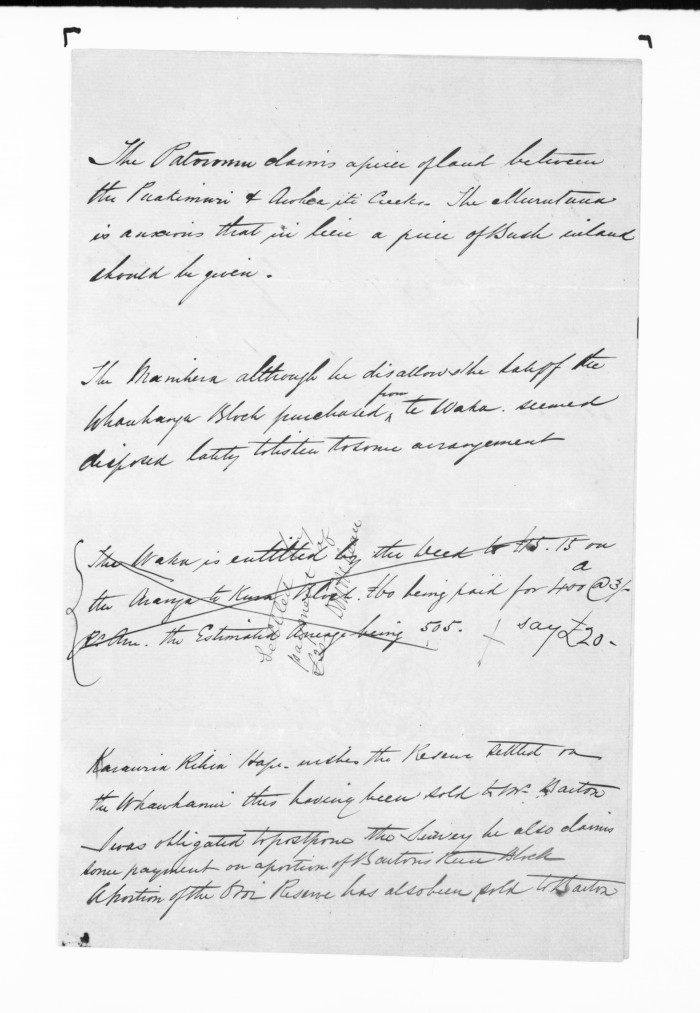 The Patoromu claims a piece of land between
the Puakimuri & Awhea iti Creeks. The Murutuna
is anxious that in lieu a piece of Bush inland
should be given.
The Manihera although he disallows the sale of the
Whauhanga Block purchased from te Waka. seemed
disposed lately to listen to some arrangement
The Waka is entitled by the Deed to £15. 15 on
the Aranga te Kura Block. £60 being paid for 400 a @ 3/-
Pr Acre. the Estimated Acreage being 505. say £20-
Settled
payment of
£20
Karauria Rihia Hape. wishes the Reserve settled on
the Whauhamu this having been sold to Mr. Barton
I was obligated to postpone the Survey he also claims
some payment on a portion of Bartons Run Block
A portion of the Reserve has also been sold to Barton